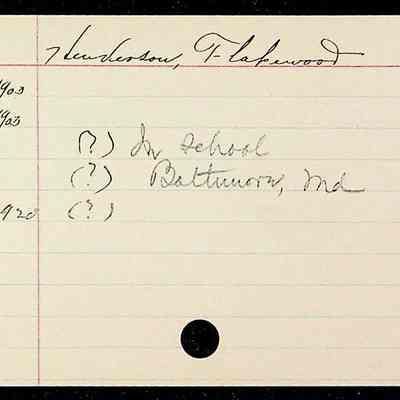 Henderson, F. Lakewood
1900
1903
(?) In school
(?) Baltimore, Md
1920 (?)